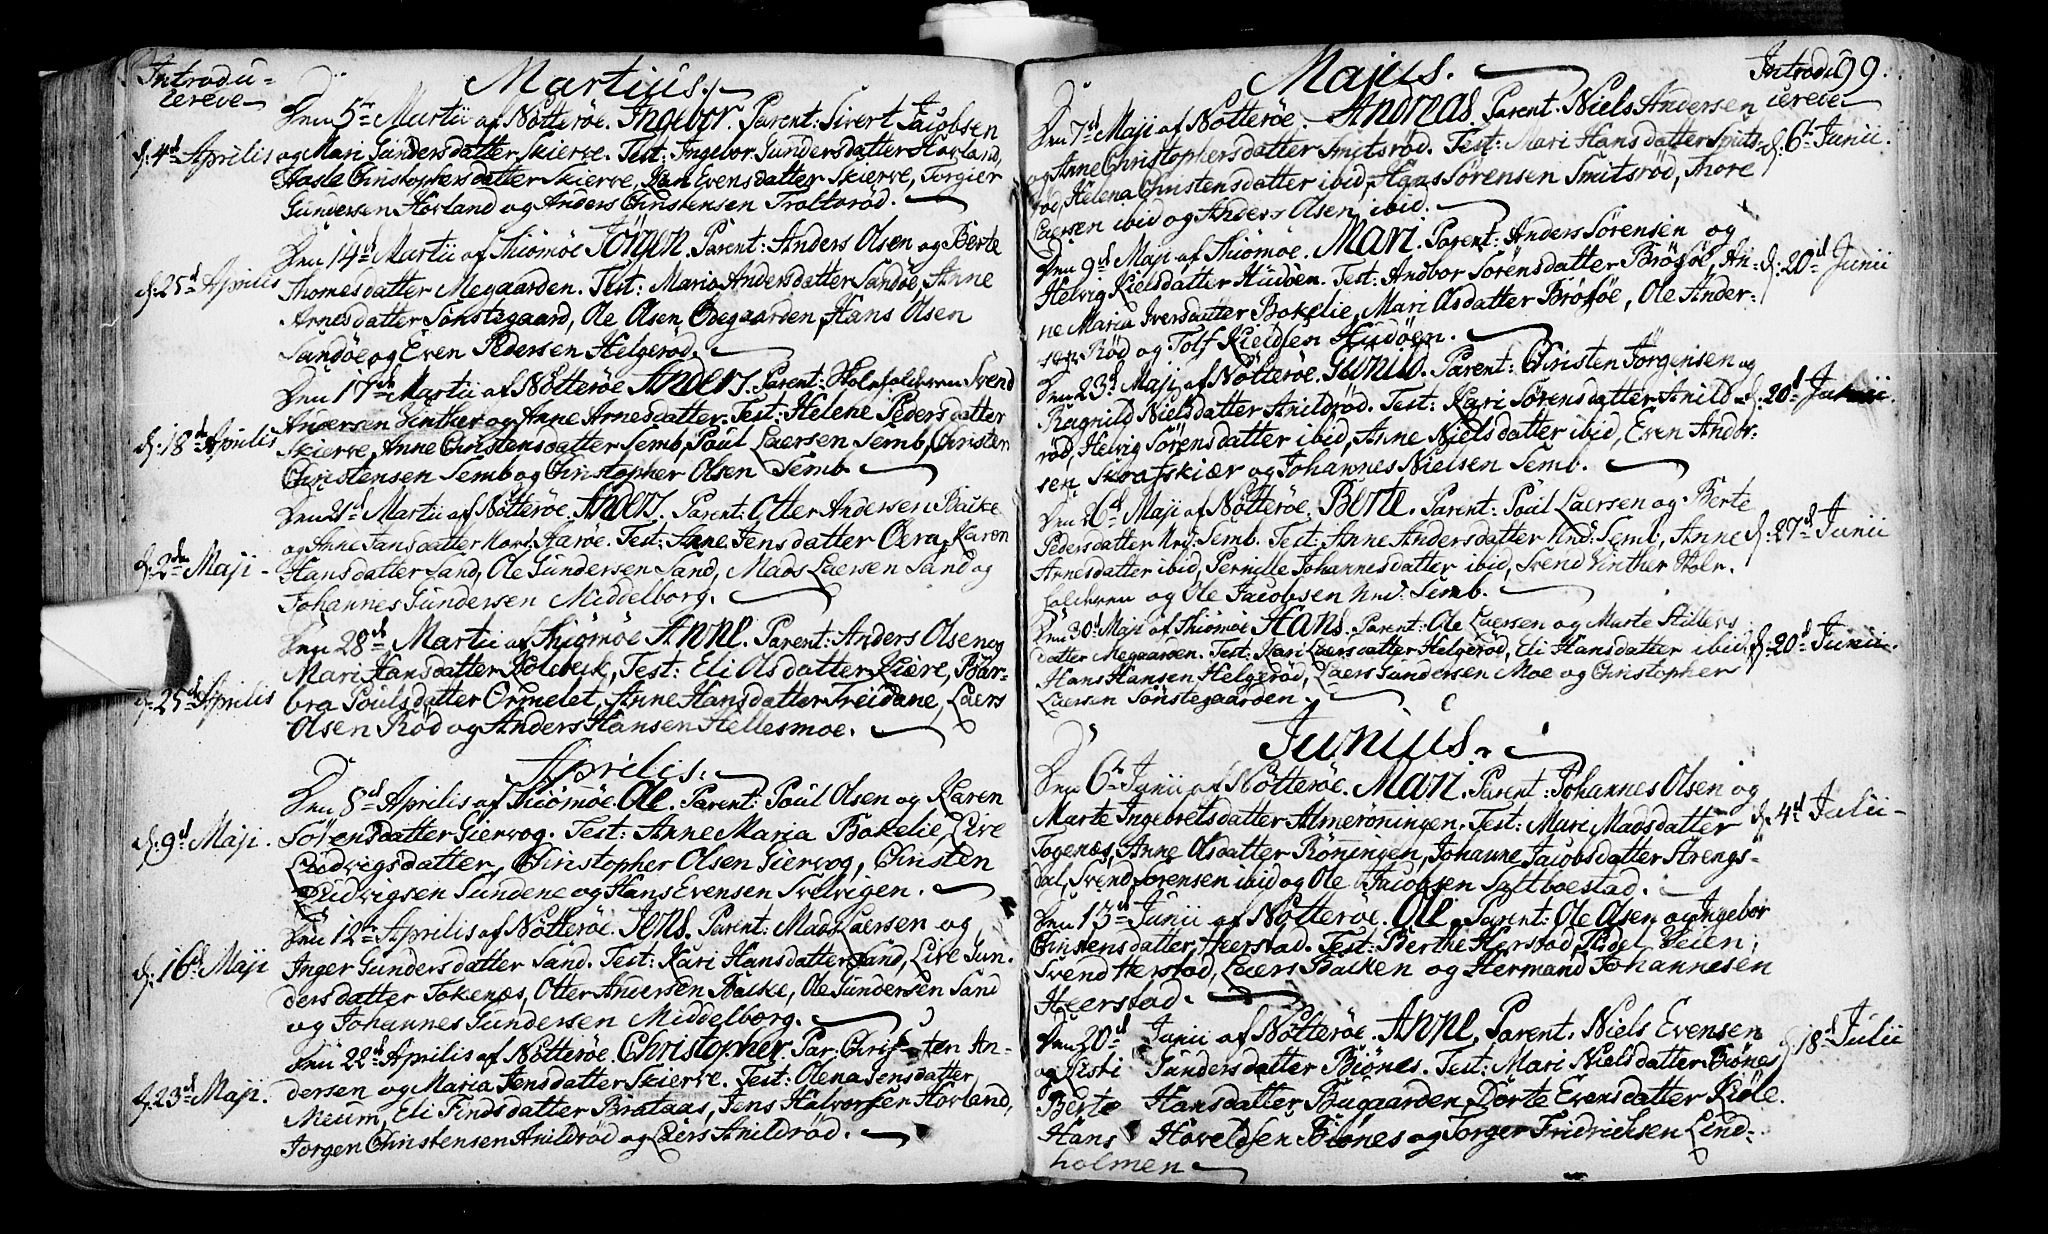 Introdu=
cerede
Martius.
Den 5te Martii af Nötteröe. Ingebor. Parent: Sivert Jacobsen
d: 4de Aprilis
og Mari Gundersdatter Skierve. Test: Ingebor Gundersdatter Hovland,
Christophersdatter Skierve, Evensdatter Skierve, Torgier
Gundersen Hovland og Anders Christensen Troltvröd.
Den 14de Martii af Thiömöe Jörgen. Parent: Anders Olsen og Berte
d: 25de Aprilis
Thomesdatter Megaarden. Test: Maria Andersdatter Sandöe, Anne
Arnesdatter Sönstegaard, Ole Olsen Odegaarden, Hans Olsen
Sandöe og Even Pedersen Helgeröd.
Den 17de Martii af Nötteröe Anders. Parent: Svend
Andersen Vinther og Anne Arnesdatter. Test: Helene Pedersdatter
d: 18de Aprilis
Skierve, Anne Christensdatter Semb, Poul Laersen Semb, Christen
Christensen Semb og Christopher Olsen Semb.
Den 21de Martii af Nötteröe. Anders. Parent: Otter Andersen Bakke
og Anne Jansdatter Haröe. Test: Anne Jensdatter Oera, Karen
d: 2den Maji
Hansdatter Sand, Ole Gundersen Sand, Mads Laersen Sand og
Johannes Gundersen Middelborg.
Den 28de Martii af Thiömöe Anne. Parent: Anders Olsen og
Mari Hansdatter Holebeck, Test: Eli Olsdatter Kiære, Bar=
d: 25de Aprilis
bra Poulsdatter Ormelet, Anne Hansdatter Treidane, Laers
Olsen Röd og Anders Hansen Hellesmoe.
Aprilis.
Den 8de Aprilis af Thiömöe. Ole. Parent: Poul Olsen og Karen
d: 9de Maji.
Sörensdatter Giervog. Test: Anne Maria Bokelie, Live
Ludvigsdatter, Christopher Olsen Giervog, Christen
Ludvigsen Sundene og Hans Evensen Svelvigen.
Den 12te Aprilis af Nötteröe. Jens. Parent: Mads Laersen og
d: 16de Maji
Inger Gundersdatter Sand. Test: Kari Hansdatter Sand, Live Gun.
dersdatter Tokenæs, Otter Andersen Bakke, Ole Gundersen Sand
og Johannes Gundersen Middelborg.
Den 22de Aprilis af Nötteröe. Christopher. Par: Christen An=
d: 23de Maji.
dersen og Maria Jensdatter Skierve. Test: Olena Jensdatter
Meum, Eli Findsdatter Brataas, Jens Halvorsen Hovland,
Jorgen Christensen Anildröd og Laers Anildröd.
Majus.
Introdu
99.
cerede
Den 7de Maji af Nötteröe. Andreas. Parent: Niels Andersen
og Anne Christophersdatter Smitsröd. Test: Mari Hansdatter Smits=
d: 6te Junii.
röd, Helena Christensdatter ibid, Hans Sörensen Smitsröd, Thore
Laersen ibid og Anders Olsen ibid.
Den 9de Maji af Thiömöe. Mari. Parent: Anders Sörensen og
Helvig Kielsdatter Hudöen. Test: Andbor Sörensdatter Brösöe, An=
d: 20de Junii
ne Maria Iversdatter Bokelie, Mari Olsdatter Brösöe, Ole Ander=
sen Röd og Tolf Kieldsen Hudöen.
Den 23de Maji af Nötteröe. Gunild. Parent: Christen Jörgensen og
Ragnild Nielsdatter Anildröd. Test: Kari Sörensdatter Anild
d: 20de Junii.
röd, Helvig Sörensdatter ibid, Anne Nielsdatter ibid, Even Ander=
sen Skrafskiær og Johannes Nielsen Semb.
Den 26de Maji af Nötteröe. Berte. Parent: Poul Laersen og Berte
Pedersdatter Nrd: Semb. Test: Anne Andersdatter Nrd: Semb, Anne
d: 27de Junii
Arnesdatter ibid, Pernille Johannesdatter ibid, Svend Vinther
og Ole Jacobsen Nrd: Semb.
Den 30de Maji af Thiömöe Hans. Parent: Ole Laersen og Marte
datter Megaarden. Test: Kari Laersdatter Helgeröd, Eli Hansdatter ibid,
d: 20de Junii.
Hans Hansen Helgeröd, Laers Gundersen Moe og Christopher
Laersen Sönstegaarden.
Junius.
Den 6te Junii af Nötteröe. Mari. Parent: Johannes Olsen og
Marte Ingebretsdatter Almeröningen. Test: Mari Madsdatter
d: 4de Julii
Togenæs, Anne Olsdatter Röningen, Johanne Jacobsdatter Strengs=
dal, Svend Sörensen ibid og Ole Jacobsen Saltboestad.
Den 13de Junii af Nötteröe. Ole. Parent: Ole Olsen og Ingebor
Christensdatter, Heerstad. Test: Berthe Herstad, Veien,
Svend Herstad, Laers Bakken og Hermand Johannesen
Heerstad.
Den 20de Junii af Nötteröe. Anne. Parent. Niels Evensen
d: 18de Julii
og Gundersdatter Biönes. Test: Mari Nielsdatter Biönes
Berte Hansdatter Bugaarden, Dorte Evensdatter Kiöle.
Hans Biönes og Torger Fridrichsen Lind=
holmen